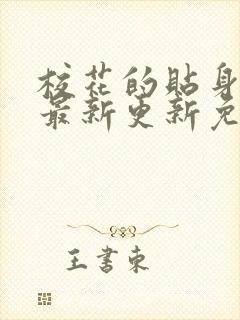 校花的貼身
最新更新免
王書東